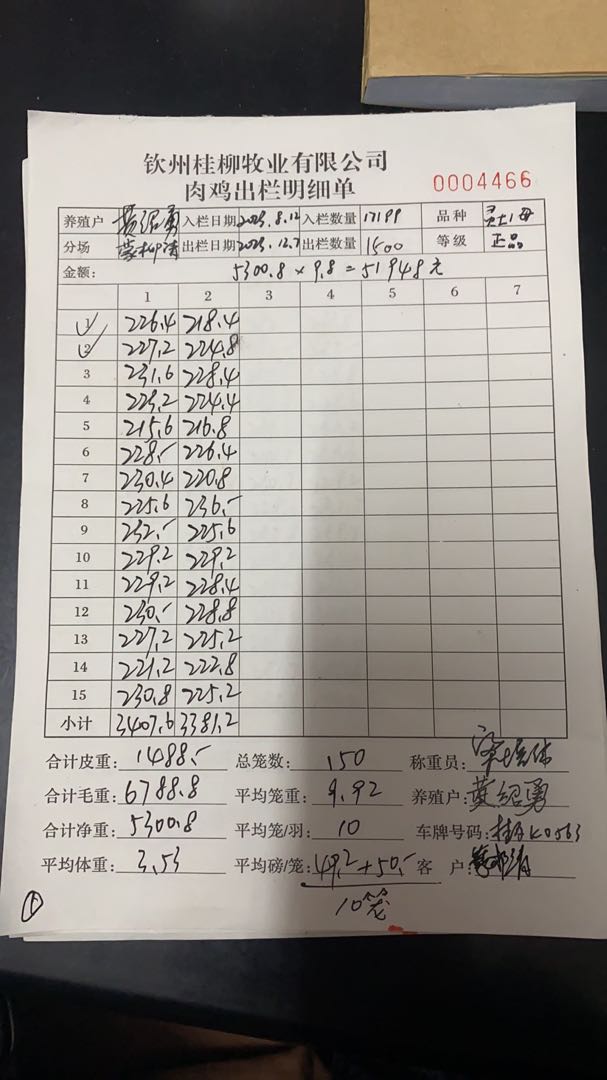 钦州桂柳牧业有限公司
肉鸡出栏明细单
0004466
养殖户 黄绍勇 入栏日期 2023.8.12 入栏数量 17199 品种
分场 出栏日期 2023.12.7 出栏数量 1500 等级 正品
金额: 5300.8 × 9.8 = 51948元
1 2 3 4 5 6 7
1 226.4 218.4
2 227.2 224.8
3 231.6 228.4
4 223.2 224.4
5 215.6 216.8
6 228.- 226.4
7 230.4 220.8
8 225.6 236.-
9 232.- 225.6
10 229.2 229.2
11 229.2 228.4
12 230.- 228.8
13 227.2 225.2
14 221.2 222.8
15 230.8 225.2
小计 3407.6 3381.2
合计皮重: 1488.- 总笼数: 150 称重员:
合计毛重: 6788.8 平均笼重: 9.92 养殖户: 黄绍勇
合计净重: 5300.8 平均笼/羽: 10 车牌号码:
平均体重: 3.53 平均磅/笼: 49.2+50.- 客 户:
10笼